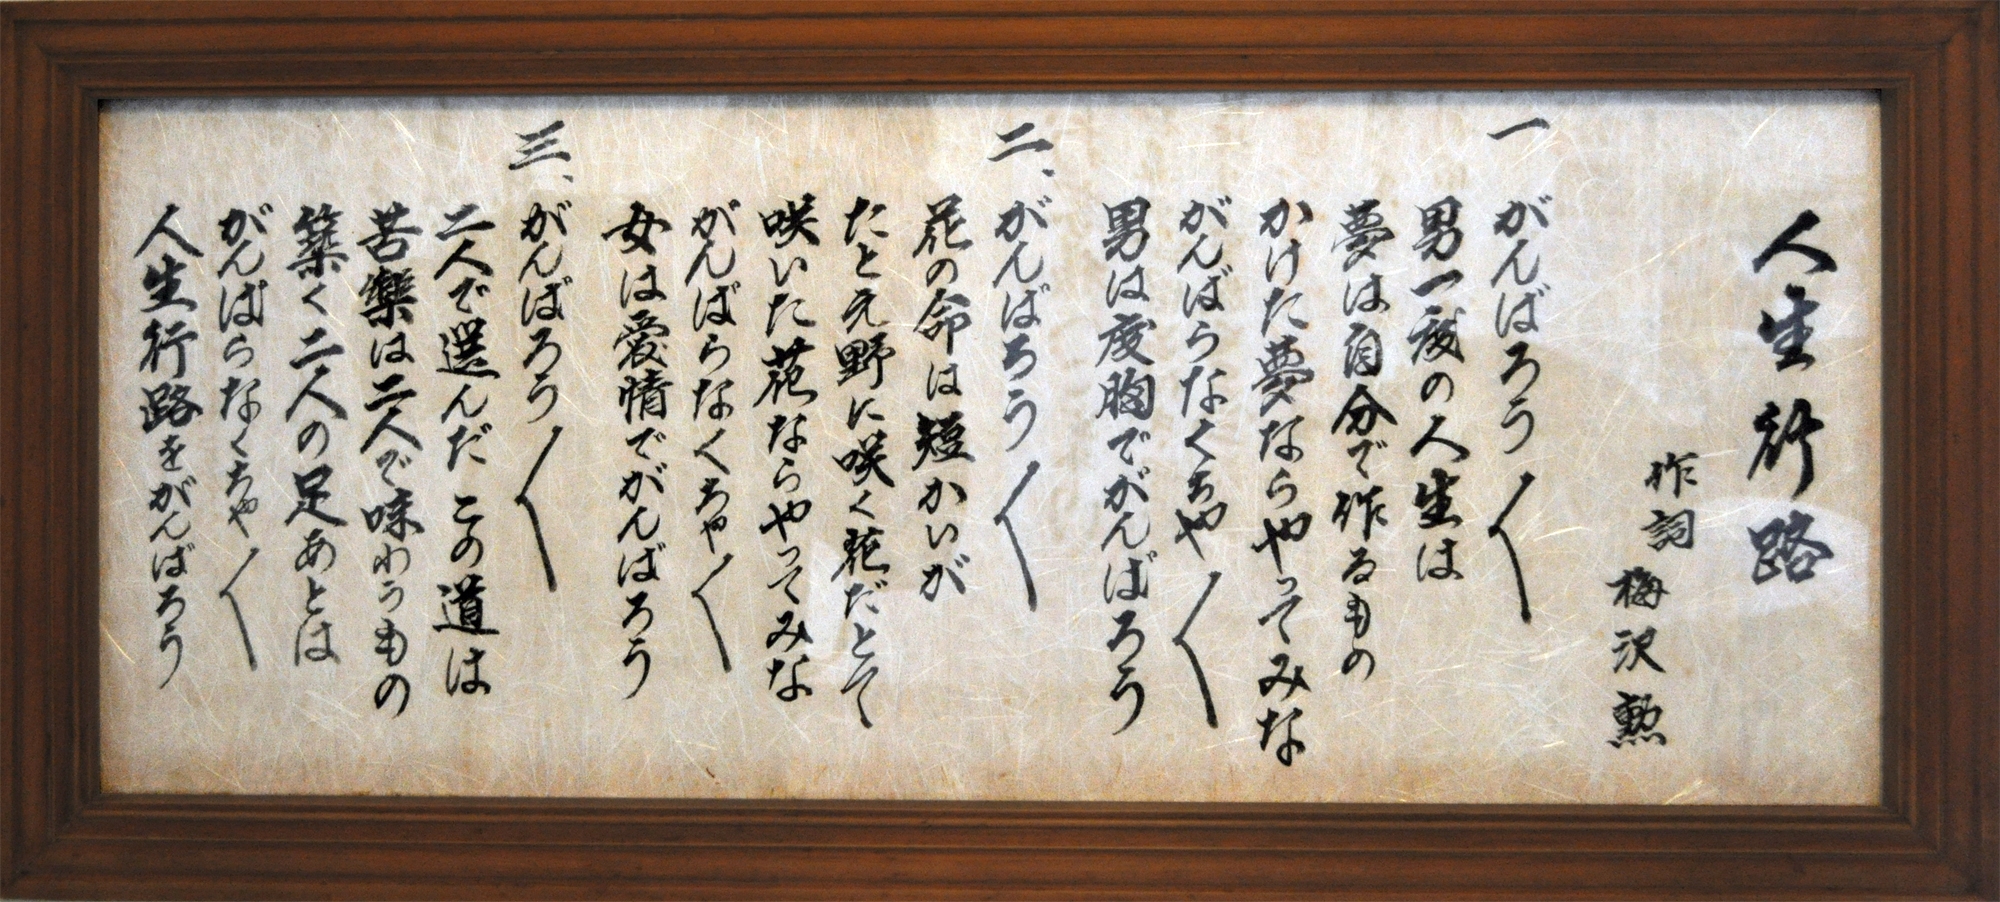 人生行路
作詞 梅沢勲
一 がんばろう〱
男一度の人生は
夢は自分で作るもの
かけた夢ならやってみな
がんばらなくちゃ〱
男は度胸でがんばろう
二、がんばろう〱
花の命は短かいが
たとえ野に咲く花だとて
咲いた花ならやってみな
がんばらなくちゃ〱
女は愛情でがんばろう
三、がんばろう〱
二人で選んだ この道は
苦楽は二人で味わうもの
築く二人の足あとは
がんばらなくちゃ〱
人生行路をがんばろう